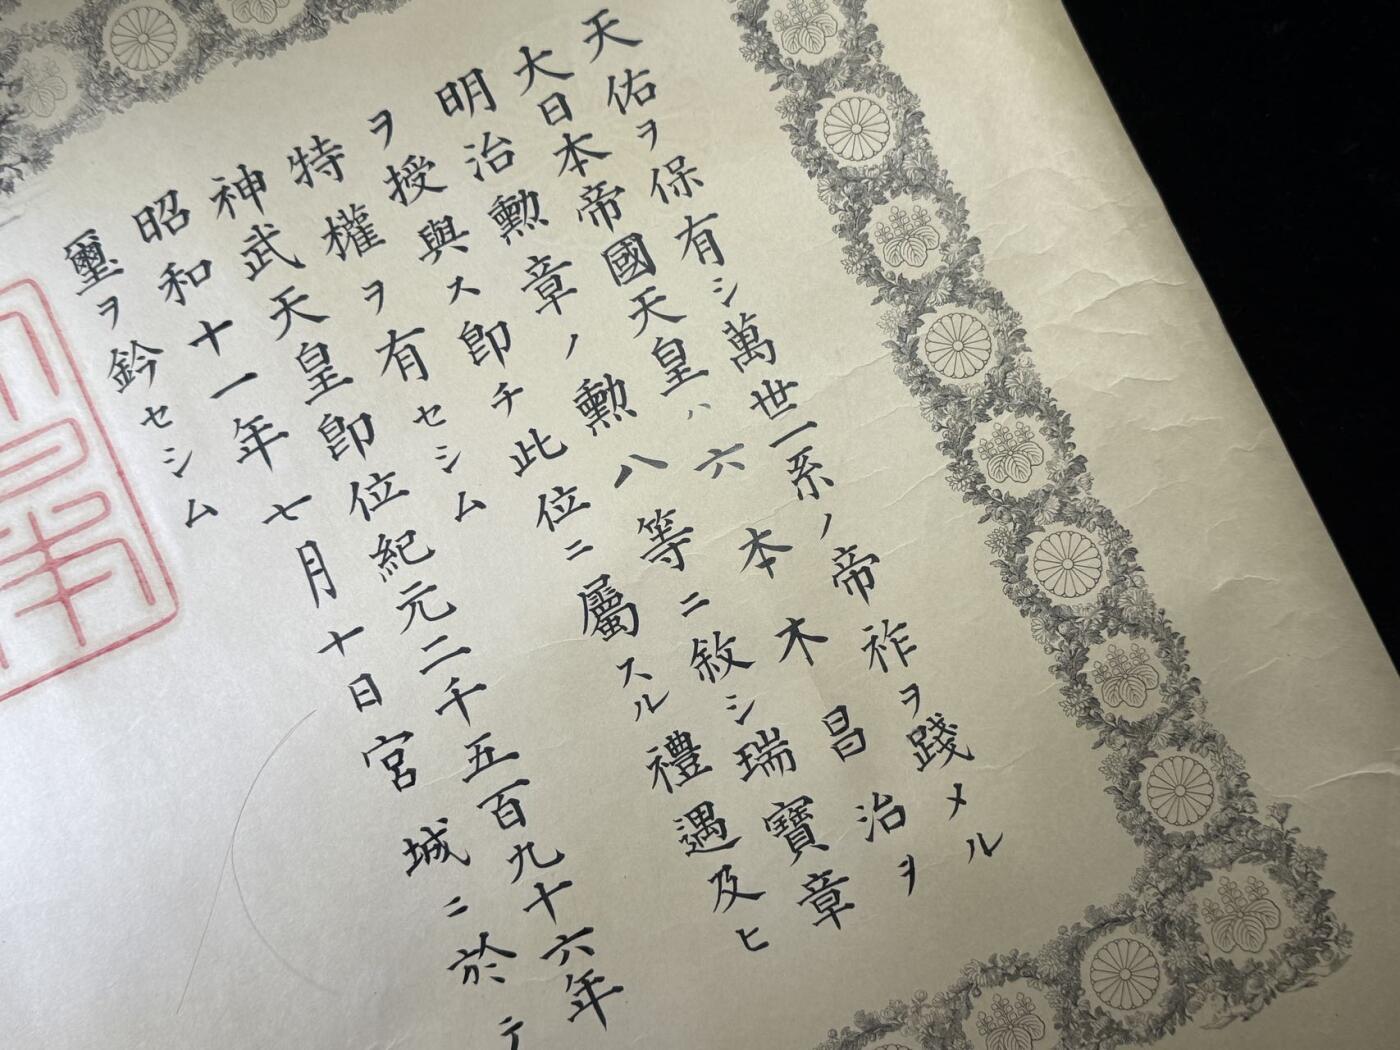 天佑ヲ保有シ萬世一系ノ帝祚ヲ踐メル
大日本帝國天皇ハ六本木昌治ヲ
明治勳章ノ勳八等ニ敍シ瑞寶章
ヲ授與ス卽チ此位ニ屬スル禮遇及ヒ
特權ヲ有セシム
神武天皇卽位紀元二千五百九十六年
昭和十一年七月十日宮城ニ於テ
璽ヲ鈐セシム